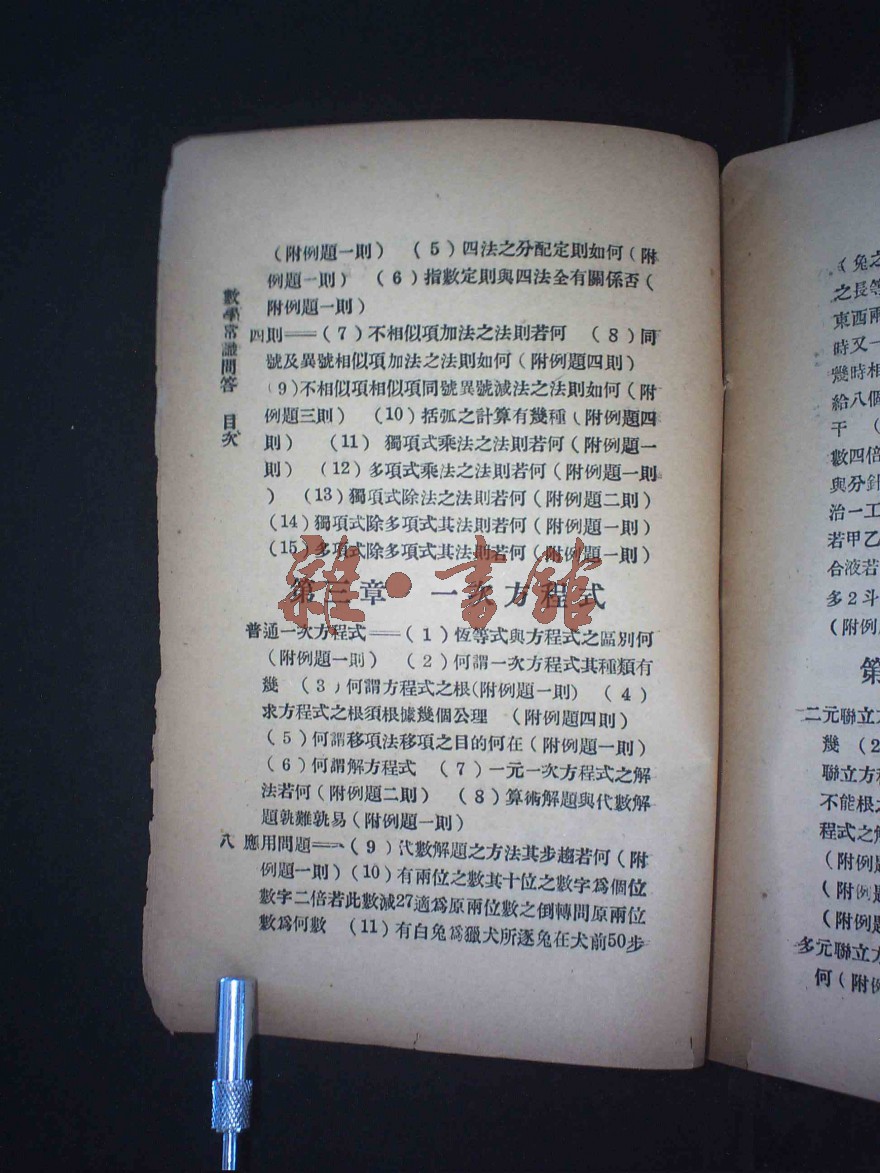 數學常識問答 目次
八
(附例題一則) (5)四法之分配定則如何(附
例題一則) (6)指數定則與四法全有關係否(
附例題一則)
四則══(7)不相似項加法之法則若何 (8)同
號及異號相似項加法之法則如何(附例題四則)
(9)不相似項相似項同號異號減法之法則如何(附
例題三則) (10)括弧之計算有幾種(附例題四
則) (11)獨項式乘法之法則若何(附例題一
則) (12)多項式乘法之法則若何(附例題一則
) (13)獨項式除法之法則若何(附例題二則)
(14)獨項式除多項式其法則若何(附例題一則)
(15)多項式除多項式其法則若何(附例題一則)
第三章 一次方程式
普通一次方程式══(1)恆等式與方程式之區別何
(附例題一則) (2)何謂一次方程式其種類有
幾 (3)何謂方程式之根(附例題一則) (4)
求方程式之根須根據幾個公理 (附例題四則)
(5)何謂移項法移項之目的何在(附例題一則)
(6)何謂解方程式 (7)一元一次方程式之解
法若何(附例題二則) (8)算術解題與代數解
題孰難孰易(附例題一則)
應用問題══(9)代數解題之方法其步趨若何(附
例題一則)(10)有兩位之數其十位之數字爲個位
數字二倍若此數減27適爲原兩位數之倒轉問原兩位
數爲何數 (11)有白兔爲獵犬所逐兔在犬前50步
雜·書館
(兔之
之長等
東西兩
時又一
幾時相
給八個
干 (
數四倍
與分針
治一工
若甲乙
合液若
多2斗
(附例
第
二元聯立方
幾 (2
聯立方程
不能根之
程式之解
(附例題
(附例題
(附例題
多元聯立方
何(附例